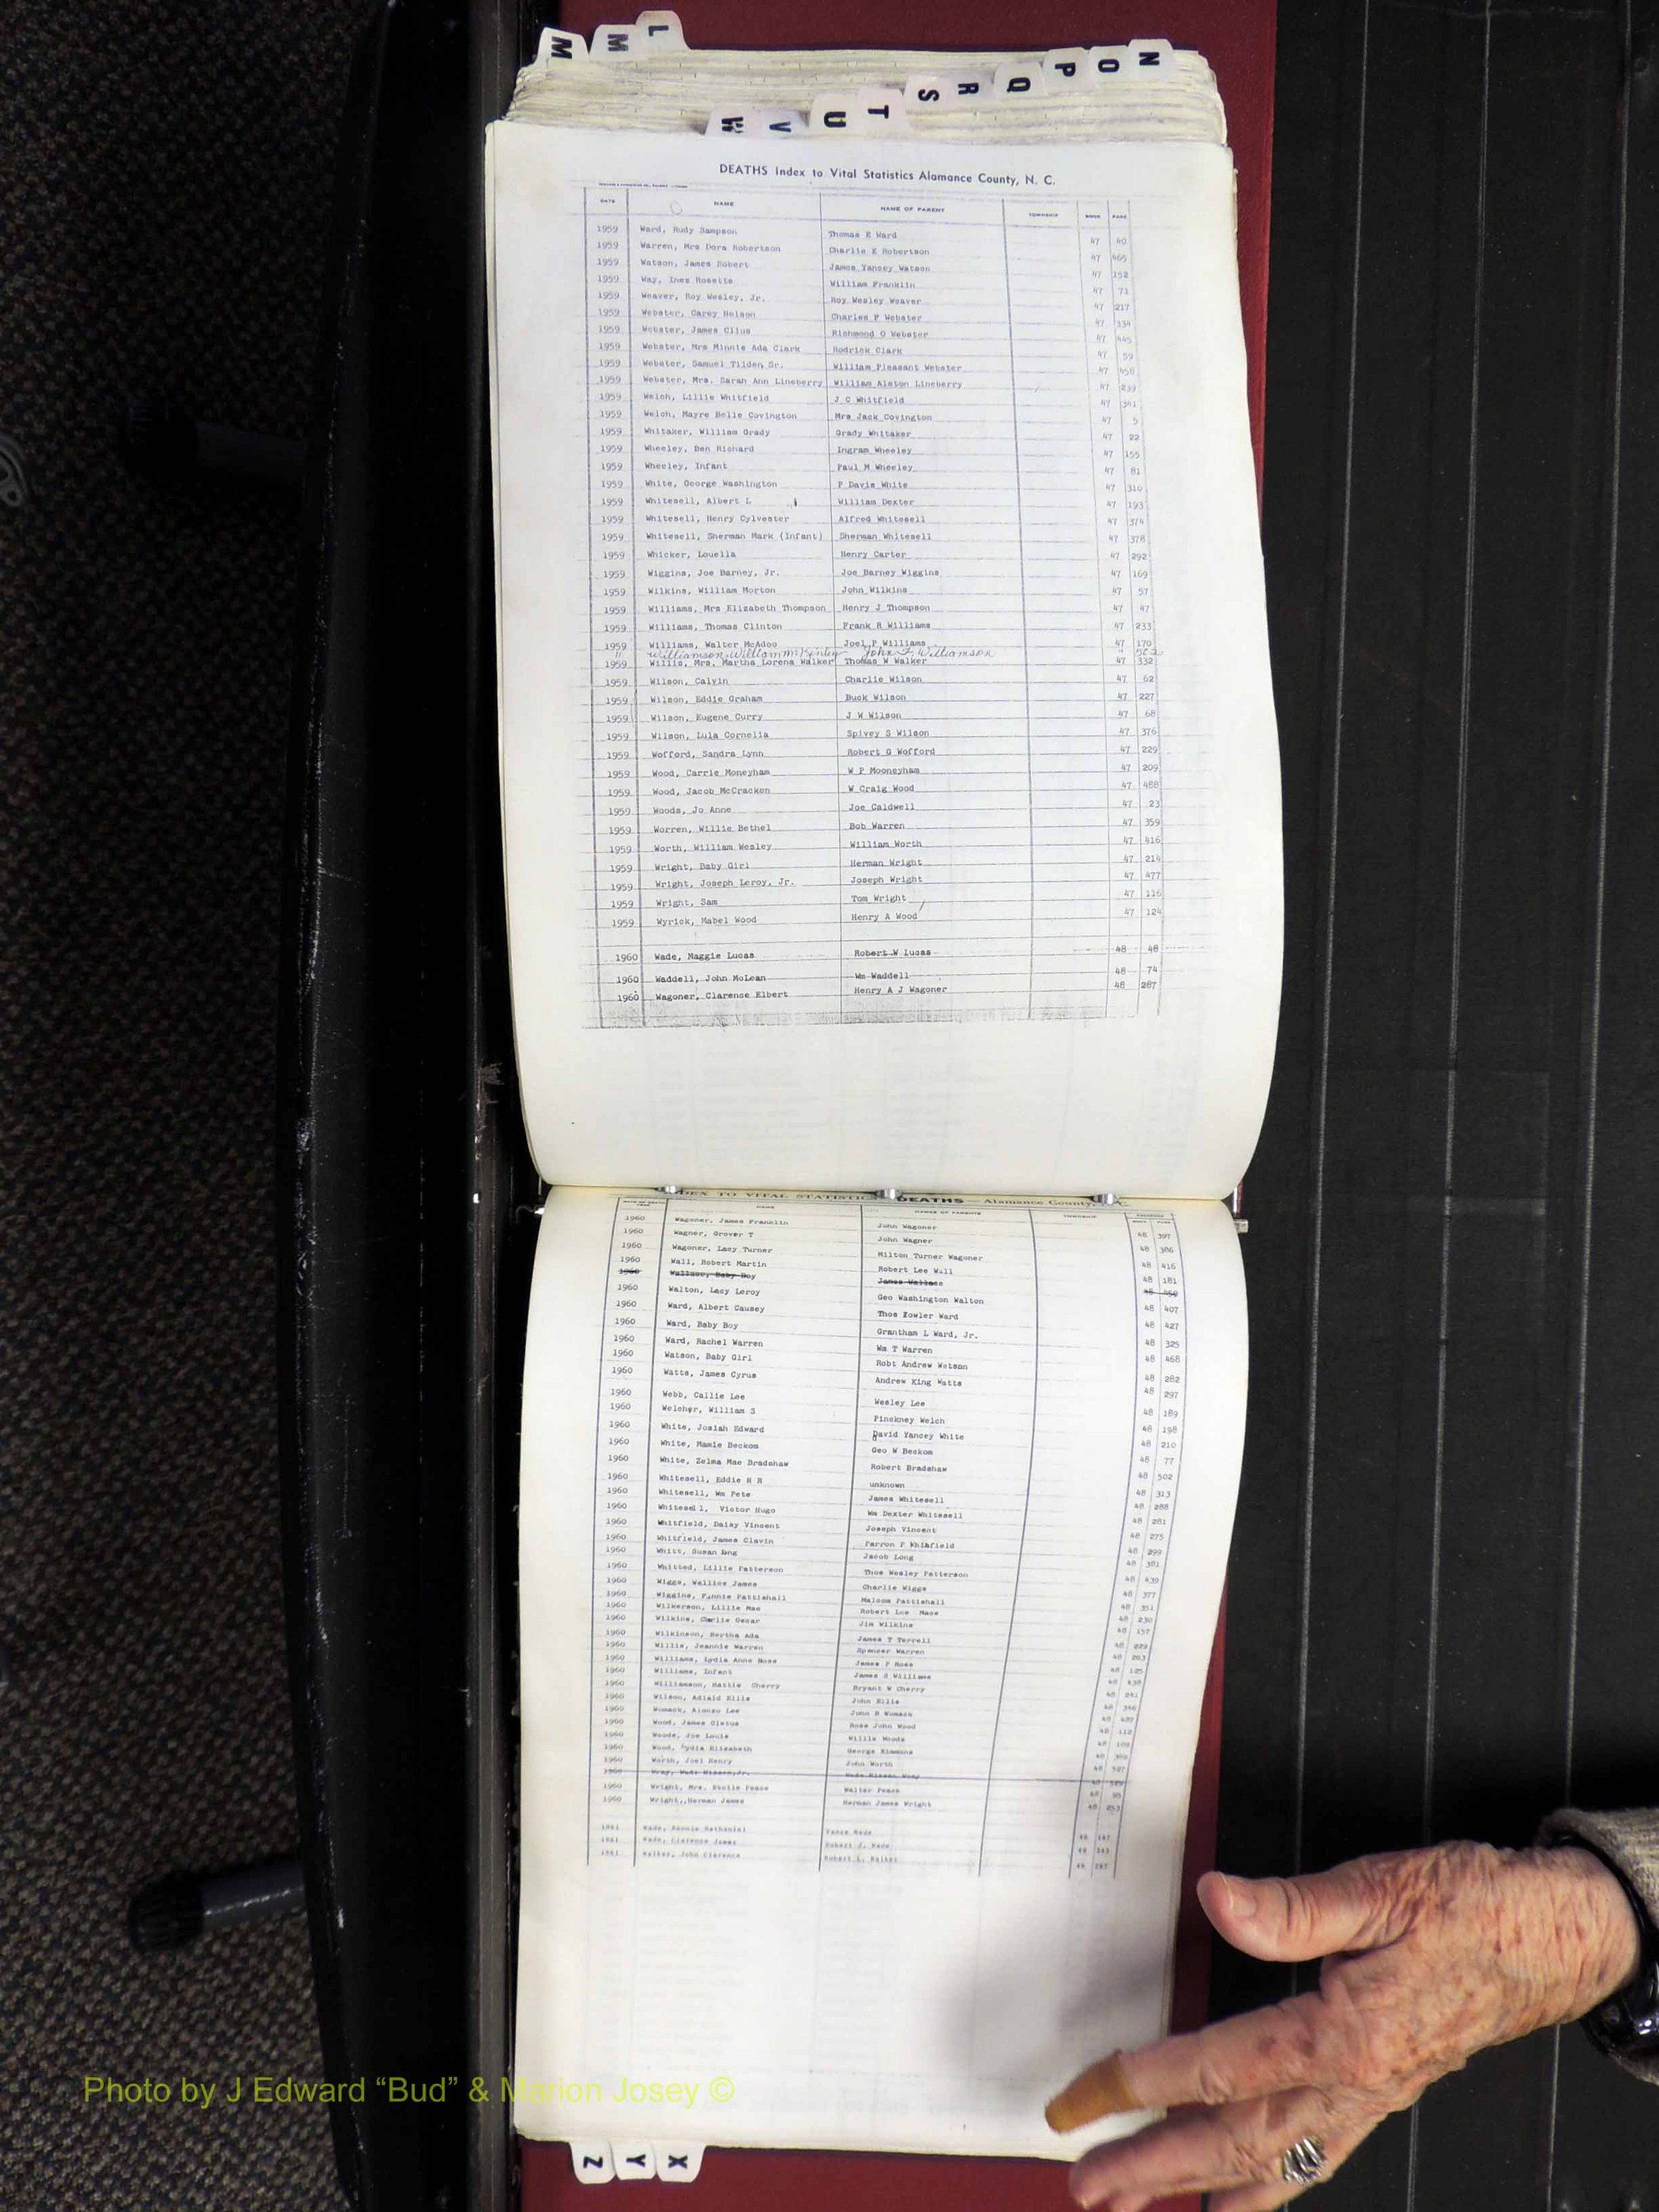 L
M
M
N
O
P
Q
R
S
T
U
V
W
DEATHS Index to Vital Statistics Alamance County, N. C.
DATE NAME NAME OF PARENT TOWNSHIP BOOK PAGE
1959 Ward, Rudy Sampson Thomas E Ward 47 40
1959 Warren, Mrs Dora Robertson Charlie E Robertson 47 465
1959 Watson, James Robert James Yancey Watson 47 152
1959 Way, Ines Rosetta William Franklin 47 71
1959 Weaver, Roy Wesley, Jr. Roy Wesley Weaver 47 217
1959 Webster, Carey Nelson Charles P Webster 47 334
1959 Webster, James Cilus Richmond O Webster 47 445
1959 Webster, Mrs Minnie Ada Clark Rodrick Clark 47 59
1959 Webster, Samuel Tilden, Sr. William Pleasant Webster 47 458
1959 Webster, Mrs. Sarah Ann Lineberry William Alston Lineberry 47 239
1959 Welch, Lillie Whitfield J C Whitfield 47 341
1959 Welch, Mayre Belle Covington Mrs Jack Covington 47 5
1959 Whitaker, William Grady Grady Whitaker 47 22
1959 Wheeley, Ben Richard Ingram Wheeley 47 155
1959 Wheeley, Infant Paul M Wheeley 47 81
1959 White, George Washington P Davis White 47 310
1959 Whitesell, Albert L William Dexter 47 193
1959 Whitesell, Henry Cylvester Alfred Whitesell 47 374
1959 Whitesell, Sherman Mark (Infant) Sherman Whitesell 47 378
1959 Whicker, Louella Henry Carter 47 292
1959 Wiggins, Joe Barney, Jr. Joe Barney Wiggins 47 169
1959 Wilkins, William Morton John Wilkins 47 57
1959 Williams, Mrs Elizabeth Thompson Henry J Thompson 47 47
1959 Williams, Thomas Clinton Frank R Williams 47 233
1959 Williams, Walter McAdoo Joel P Williams 47 170
" Williamson, William McKinley John F. Williamson " 502
1959 Willis, Mrs. Martha Lorena Walker Thomas W Walker 47 332
1959 Wilson, Calvin Charlie Wilson 47 62
1959 Wilson, Eddie Graham Buck Wilson 47 227
1959 Wilson, Eugene Curry J W Wilson 47 68
1959 Wilson, Lula Cornelia Spivey S Wilson 47 376
1959 Wofford, Sandra Lynn Robert G Wofford 47 229
1959 Wood, Carrie Moneyham W P Mooneyham 47 209
1959 Wood, Jacob McCracken W Craig Wood 47 488
1959 Woods, Jo Anne Joe Caldwell 47 23
1959 Worren, Willie Bethel Bob Warren 47 359
1959 Worth, William Wesley William Worth 47 416
1959 Wright, Baby Girl Herman Wright 47 214
1959 Wright, Joseph Leroy, Jr. Joseph Wright 47 477
1959 Wright, Sam Tom Wright 47 116
1959 Wyrick, Mabel Wood Henry A Wood 47 124
1960 Wade, Maggie Lucas Robert W Lucas 48 48
1960 Waddell, John McLean Wm Waddell 48 74
1960 Wagoner, Clarence Elbert Henry A J Wagoner 48 287
INDEX TO VITAL STATISTICS DEATHS — Alamance County, N.C.
NAME NAMES OF PARENTS TOWNSHIP BOOK PAGE
1960 Wagoner, James Franklin John Wagoner 48 397
1960 Wagner, Grover T John Wagner 48 386
1960 Wagoner, Lacy Turner Milton Turner Wagoner 48 416
1960 Wall, Robert Martin Robert Lee Wall 48 181
1960 Wallace, Baby Boy James Wallace 48 450
1960 Walton, Lacy Leroy Geo Washington Walton 48 407
1960 Ward, Albert Causey Thos Fowler Ward 48 427
1960 Ward, Baby Boy Grantham L Ward, Jr. 48 325
1960 Ward, Rachel Warren Wm T Warren 48 468
1960 Watson, Baby Girl Robt Andrew Watson 48 282
1960 Watts, James Cyrus Andrew King Watts 48 297
1960 Webb, Callie Lee Wesley Lee 48 189
1960 Welcher, William S Pinckney Welch 48 198
1960 White, Josiah Edward David Yancey White 48 210
1960 White, Mamie Beckom Geo W Beckom 48 77
1960 White, Zelma Mae Bradshaw Robert Bradshaw 48 502
1960 Whitesell, Eddie H R unknown 48 313
1960 Whitesell, Wm Pete James Whitesell 48 288
1960 Whitesell, Victor Hugo Wm Dexter Whitesell 48 281
1960 Whitfield, Daisy Vincent Joseph Vincent 48 275
1960 Whitfield, James Clavin Farron F Whihfield 48 299
1960 Whitt, Susan Long Jacob Long 48 381
1960 Whitted, Lillie Patterson Thos Wesley Patterson 48 439
1960 Wiggs, Wallice James Charlie Wiggs 48 377
1960 Wiggins, Fannie Pattishall Malcom Pattishall 48 351
1960 Wilkerson, Lillie Mae Robert Lee Maee 48 230
1960 Wilkins, Charlie Cesar Jim Wilkins 48 157
1960 Wilkinson, Bertha Ada James T Terrell 48 229
1960 Willis, Jeannie Warren Spencer Warren 48 263
1960 Williams, Lydia Anne Ross James P Ross 48 125
1960 Williams, Infant James R Williams 48 438
1960 Williamson, Hattie Cherry Bryant W Cherry 48 241
1960 Wilson, Adlaid Ellis John Ellis 48
1960 Womack, Alonzo Lee John R Womack 48
1960 Wood, James Cletus Rose John Wood 48 112
1960 Woods, Joe Louis Willis Woods 48
1960 Wood, Lydia Elizabeth George Simmons 48
1960 Worth, Joel Henry John Worth 48 327
1960 Wray, Wade Hisson, Jr. Wade Hisson Wray 48
1960 Wright, Mrs. Estelle Peace Walter Peace 48 95
1960 Wright, Herman James Herman James Wright 48 253
1961 Wade, Bennie Nathaniel Vance Wade 49 147
1961 Wade, Clarence James Robert J. Wade 49 143
1961 Walker, John Clarence Robert L. Walker 49 287
Photo by J Edward “Bud” & Marion Josey ©
Z
Y
X